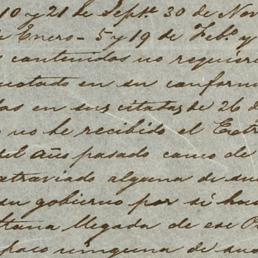 10 y 21 de Septe. 30 de Nov
e Enero - 5 y 19 de Febo. y
s contenidos no requiere
notado en su conform
das en sus citatas de 26 d
o no he recibido el Extr
del año pasado como de
extraviado alguna de su
su gobierno por si hu
llegada de ese
poco ninguna de sus